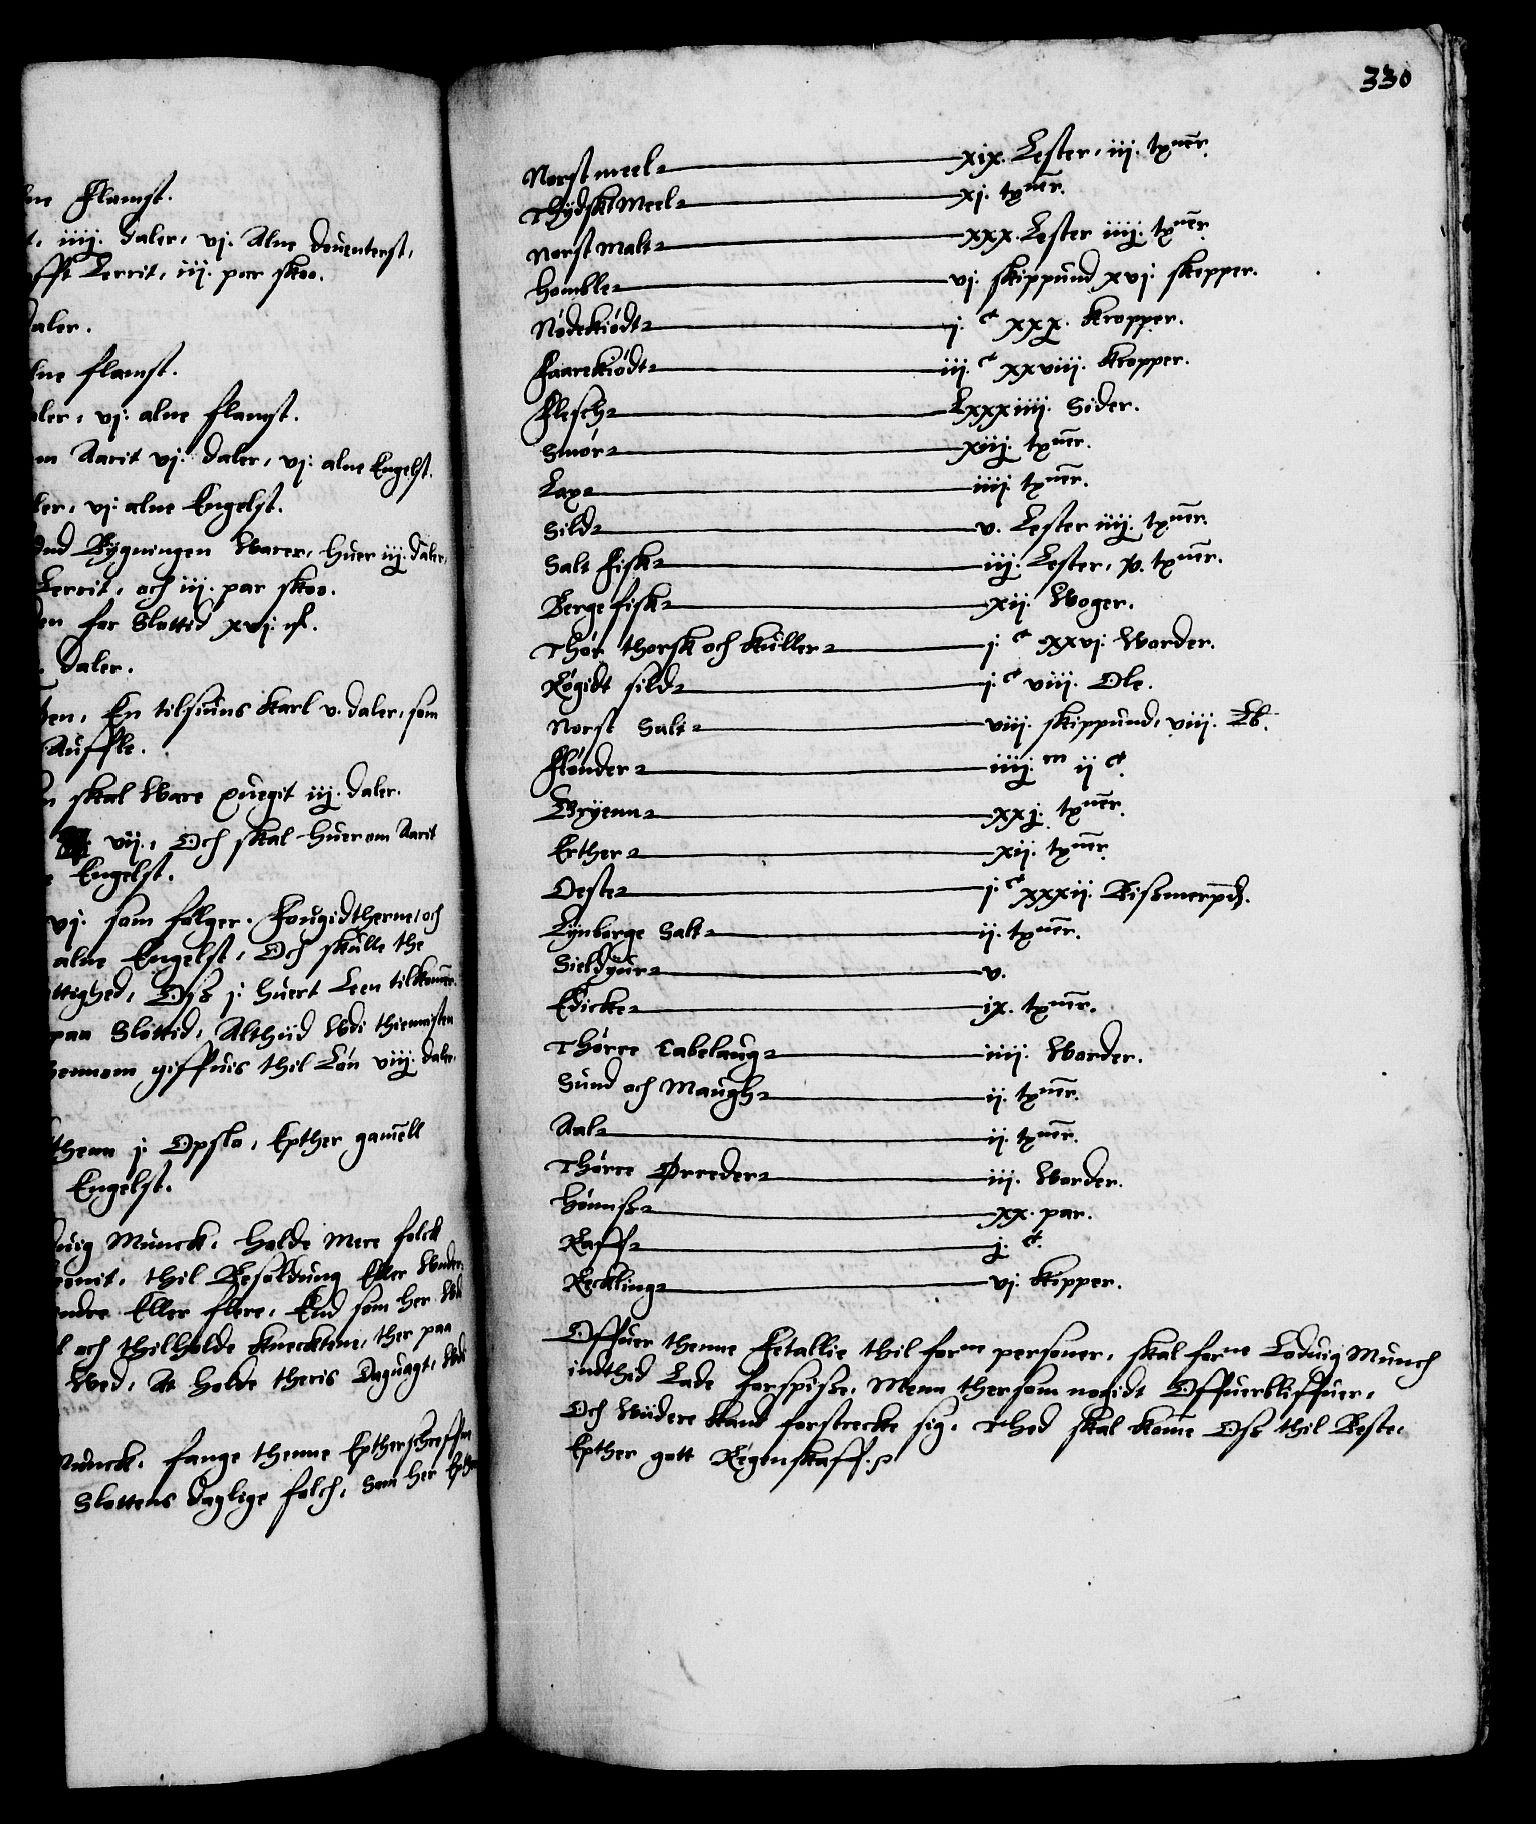 ne Flamst.
iiij. daler, vj. Alne Deuenterst,
Lerrit, iij. par skoo.
daler.
alne flamst.
aler, vj. alne flamst.
om Aarit vj. daler, vj. alne Engelst.
ler, vj. alne Engelst.
Bygningen Warer, huer iij. daler,
Lerrit, och iij. par skoo.
for Slottid xvj.
daler.
En tilsiuns karl v. daler, som
skal Ware iij. daler.
vij., Och skal huer om Aarit
Engelst.
vj. som følger. Fougidtherne, och
alne Engelst, Och skulle the
Oss j. huert Leen tilkommer.
paa Slottid, Althiid Wdi thiennisten
hannom giffuis thil Løn viij. daler.
j. Opslo, Epther gamell
Engelst.
Munck, holde Mere folck
thil Besoldung Eller
Eller flere, End som her
och thilholde knecktene, ther paa
Wed, At holde theris Daguagt,
Munck, fange thenne Epther
Slottens daglige folch, Som her
330
Norst meel xix. Lester, iij. txner.
Thydsk Meel xj. txner.
Norst Malt xxx. Lester iiij. txner.
Homble vj. skippund xvj. skepper.
Nødekiødt j. c xxx. kropper.
Faarekiødt iij. c xxviij. kropper.
Flesch Lxxxiiij. Sider.
Smør xiij. txner.
Lax iiij. txner.
Sild v. Lester iiij. txner.
Salt Fisk iij. Lester, x. txner.
Berge fisk xij. Woger.
Thør thorsk och kuller j. c xxvj. Worder.
Røgidt sild j. c viij. Ole.
Norst Salt viij. skippund, viij. Lb.
Flønder iiij. m ij c.
Gryenn xxj. txner.
Erther xij. txner.
Oeste j. c xxxij. Bissmerpd.
Lynborge Salt ij. txner.
Sieldyur v.
Edicke ix. txner.
Thørre Cabelaug iiij. Worder.
Sund och Maugh ij. txner.
Aal ij. txner.
Thørre Ørreder iij. Worder.
Hønnss xx. par.
Raff j. c.
Reckling vj. kipper.
Offuer thenne Fetallie thil forne personer, skal forne Loduig Munch
indthid Lade forspisse, Menn thersom nogidt Offuerbliffuer,
Och Widere kand forstrecke sig, Thed skal komme Oss thil Beste,
Epther gott Regenskaff.